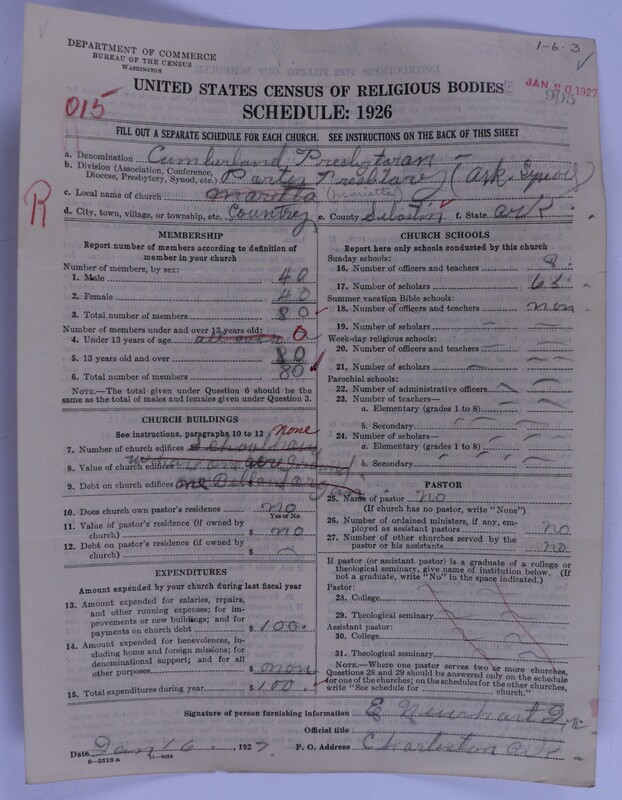 1-6-3
DEPARTMENT OF COMMERCE
BUREAU OF THE CENSUS
WASHINGTON
JAN 20 1927
905
UNITED STATES CENSUS OF RELIGIOUS BODIES
015
SCHEDULE: 1926
FILL OUT A SEPARATE SCHEDULE FOR EACH CHURCH. SEE INSTRUCTIONS ON THE BACK OF THIS SHEET
a. Denomination Cumberland Presbytaran
b. Division (Association, Conference, Diocese, Presbytery, Synod, etc.) Portey Presbtary (ark. Synod)
R
c. Local name of church Maretta (Marietta)
d. City, town, village, or township, etc. Country e. County Sebastin f. State ark
MEMBERSHIP
Report number of members according to definition of member in your church
Number of members, by sex:
1. Male 40
2. Female 40
3. Total number of members 80
Number of members under and over 13 years old:
4. Under 13 years of age all over 0
5. 13 years old and over 80
6. Total number of members 80
NOTE.—The total given under Question 6 should be the same as the total of males and females given under Question 3.
CHURCH BUILDINGS
See instructions, paragraphs 10 to 12 none
7. Number of church edifices
8. Value of church edifices
9. Debt on church edifices
10. Does church own pastor's residence no
Yes or No
11. Value of pastor's residence (if owned by church) $ no
12. Debt on pastor's residence (if owned by church) $
EXPENDITURES
Amount expended by your church during last fiscal year
13. Amount expended for salaries, repairs, and other running expenses; for improvements or new buildings; and for payments on church debt $ 100.
14. Amount expended for benevolences, including home and foreign missions; for denominational support; and for all other purposes $ non
15. Total expenditures during year $ 100.
CHURCH SCHOOLS
Report here only schools conducted by this church
Sunday schools:
16. Number of officers and teachers 8
17. Number of scholars 63
Summer vacation Bible schools:
18. Number of officers and teachers non
19. Number of scholars
Week-day religious schools:
20. Number of officers and teachers
21. Number of scholars
Parochial schools:
22. Number of administrative officers
23. Number of teachers—
a. Elementary (grades 1 to 8)
b. Secondary
24. Number of scholars—
a. Elementary (grades 1 to 8)
b. Secondary
PASTOR
25. Name of pastor no
(If church has no pastor, write "None")
26. Number of ordained ministers, if any, employed as assistant pastors no
27. Number of other churches served by the pastor or his assistants no
If pastor (or assistant pastor) is a graduate of a college or theological seminary, give name of institution below. (If not a graduate, write "No" in the space indicated.)
Pastor:
28. College
29. Theological seminary
Assistant pastor:
30. College
31. Theological seminary
NOTE.—Where one pastor serves two or more churches, Questions 28 and 29 should be answered only on the schedule for one of the churches; on the schedules for the other churches, write "See schedule for church."
Signature of person furnishing information E Newhart
Official title
Date Jan 16, 1927 P. O. Address Charleston Ark
8—5518a 11—9084